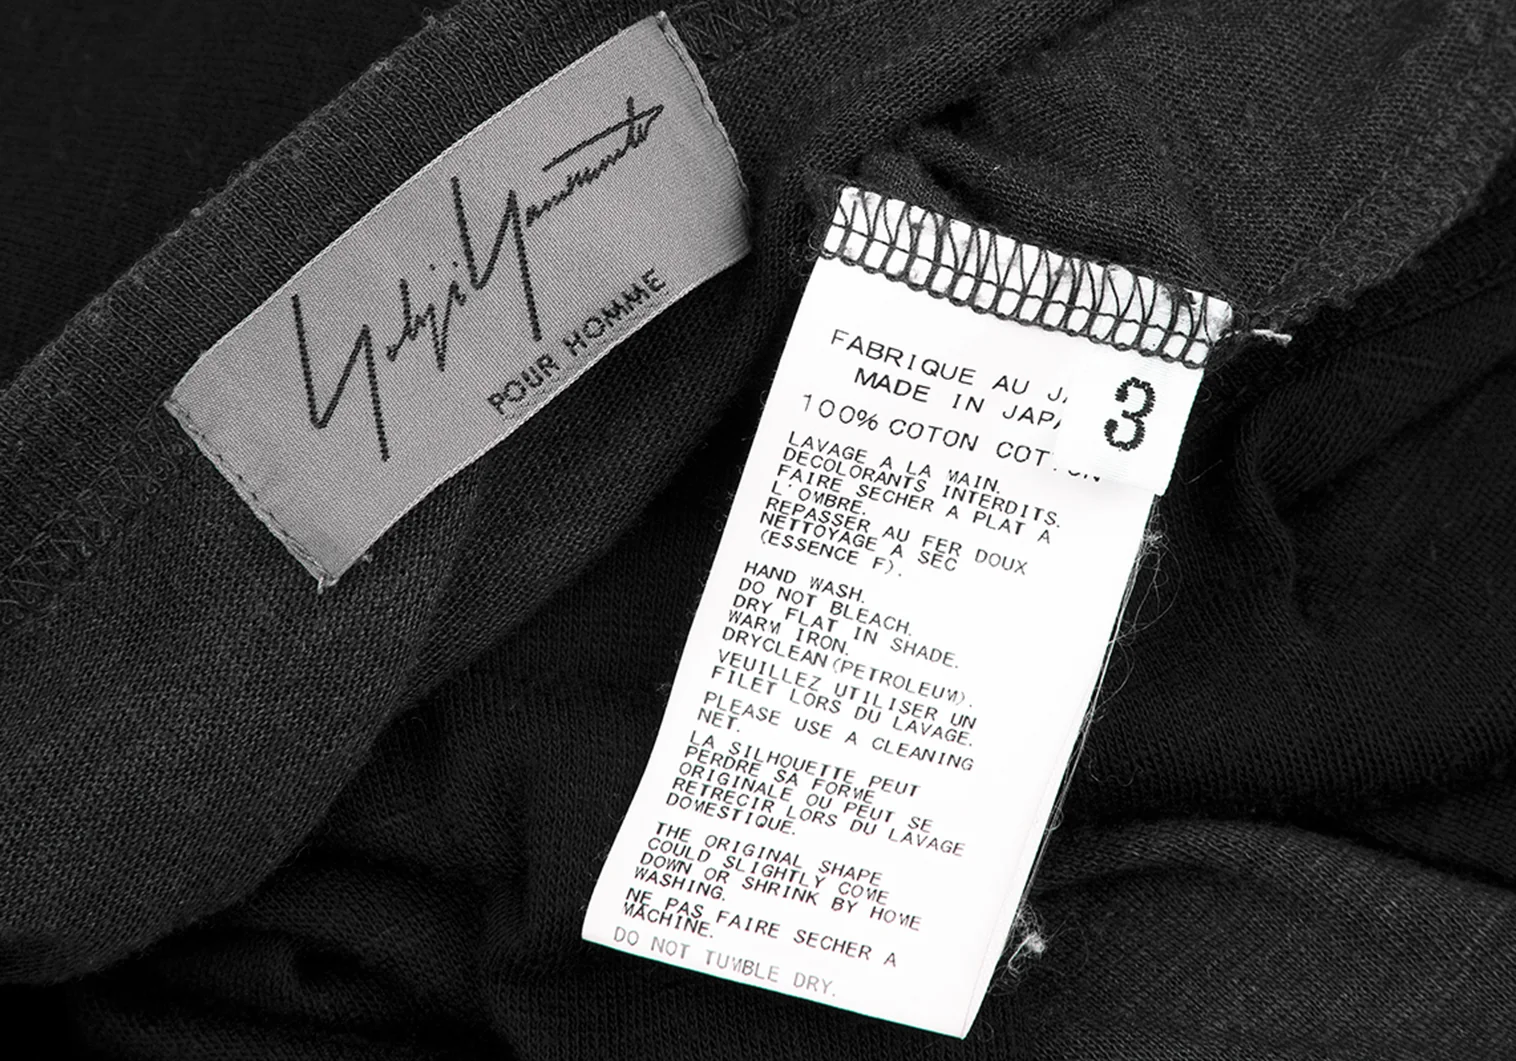 Yohji Yamamoto
POUR HOMME
3
FABRIQUE AU JA
MADE IN JAPA
100% COTON COTTON
LAVAGE A LA MAIN.
DECOLORANTS INTERDITS.
FAIRE SECHER A PLAT A
L'OMBRE.
REPASSER AU FER DOUX
NETTOYAGE A SEC
(ESSENCE F).
HAND WASH.
DO NOT BLEACH.
DRY FLAT IN SHADE.
WARM IRON.
DRYCLEAN(PETROLEUM).
VEUILLEZ UTILISER UN
FILET LORS DU LAVAGE.
PLEASE USE A CLEANING
NET.
LA SILHOUETTE PEUT
PERDRE SA FORME
ORIGINALE OU PEUT SE
RETRECIR LORS DU LAVAGE
DOMESTIQUE.
THE ORIGINAL SHAPE
COULD SLIGHTLY COME
DOWN OR SHRINK BY HOME
WASHING.
NE PAS FAIRE SECHER A
MACHINE.
DO NOT TUMBLE DRY.